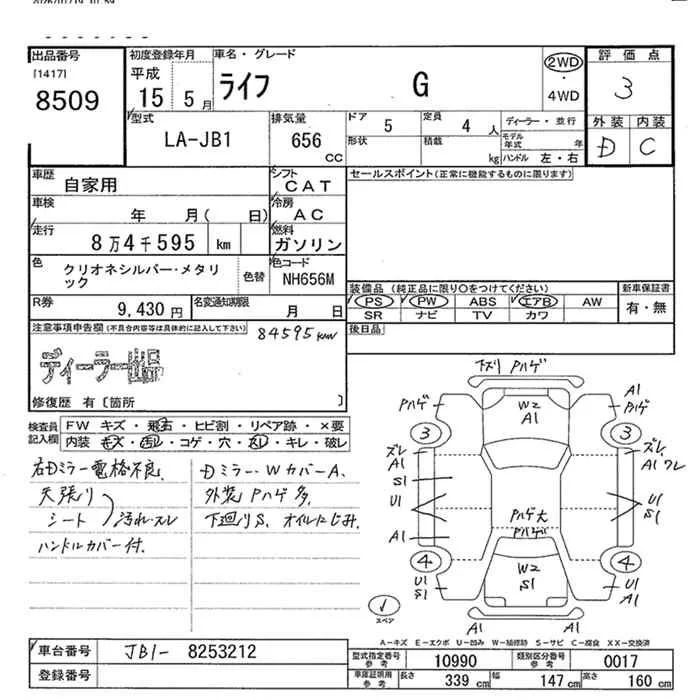 出品番号
[1417]
8509
初度登録年月
平成
15 5月
車名・グレード
ライフ G
2WD
・
4WD
評価点
3
外装 内装
D C
型式
LA-JB1
排気量
656 CC
ドア 5
定員 4 人
形状
積載 kg
ディーラー・並行
モデル年式 年
ハンドル 左・右
車歴
自家用
シフト
CAT
車検
年 月( 日)
冷房
AC
走行
8万4千595 km
燃料
ガソリン
色
クリオネシルバー・メタリック
色替
色コード
NH656M
R券
9,430 円
名変通知期限
月 日
セールスポイント(正常に機能するものに限ります)
装備品 (純正品に限り○をつけてください)
PS PW ABS エアB AW
SR ナビ TV カワ
新車保証書
有・無
後日品
注意事項申告欄(不具合内容等は具体的に記入して下さい)
84595km
ディーラー出品
修復歴 有〔箇所 〕
検査員記入欄
FW キズ・飛石・ヒビ割・リペア跡・×要
内装・キズ・汚れ・コゲ・穴・スレ・キレ・破レ
右Dミラー電格不良.
天張り
シート
汚れ・スレ
ハンドルカバー付.
Dミラー・WカバーA.
外装Pハゲ多.
下廻りS、オイルにじみ.
下ズリ Pハゲ
Pハゲ
W2
A1
A1
Pハゲ
3
3
ズレ
A1
S1
U1
A1
ズレ
A1 ワレ
U1
S1
Pハゲ大
Pハゲ
4
4
W2
S1
U1
S1
U1
A1
A1 A1
スペア
A-キズ E-エクボ U-凹み W-補修跡 S-サビ C-腐食 XX-交換済
車台番号
JB1- 8253212
登録番号
型式指定番号 参考
10990
類別区分番号 参考
0017
車庫証明用 参考
長さ 339 cm 幅 147 cm 高さ 160 cm